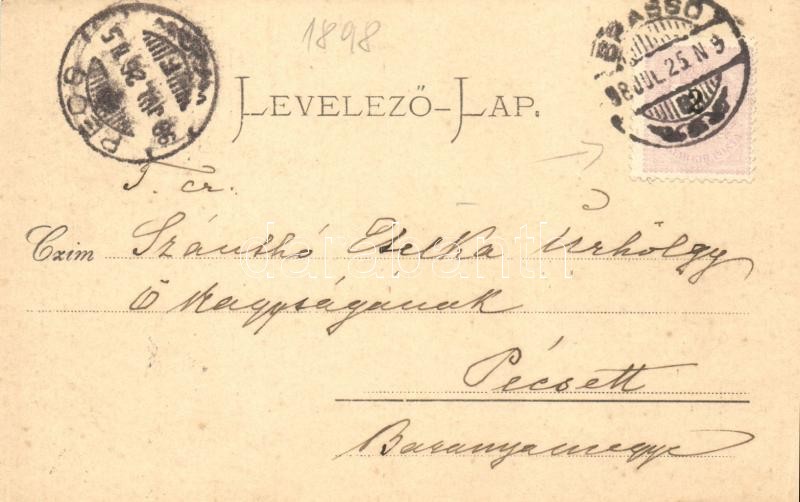 1898
BRASSÓ
98 JUL. 25 N 9
PÉCS
98 JUL. 26 N 5
LEVELEZŐ-LAP.
T. cz.
Czim Szánthó Etelka Úrhölgy
Ő Nagyságának
Pécsett
Baranyamegye
darabanth